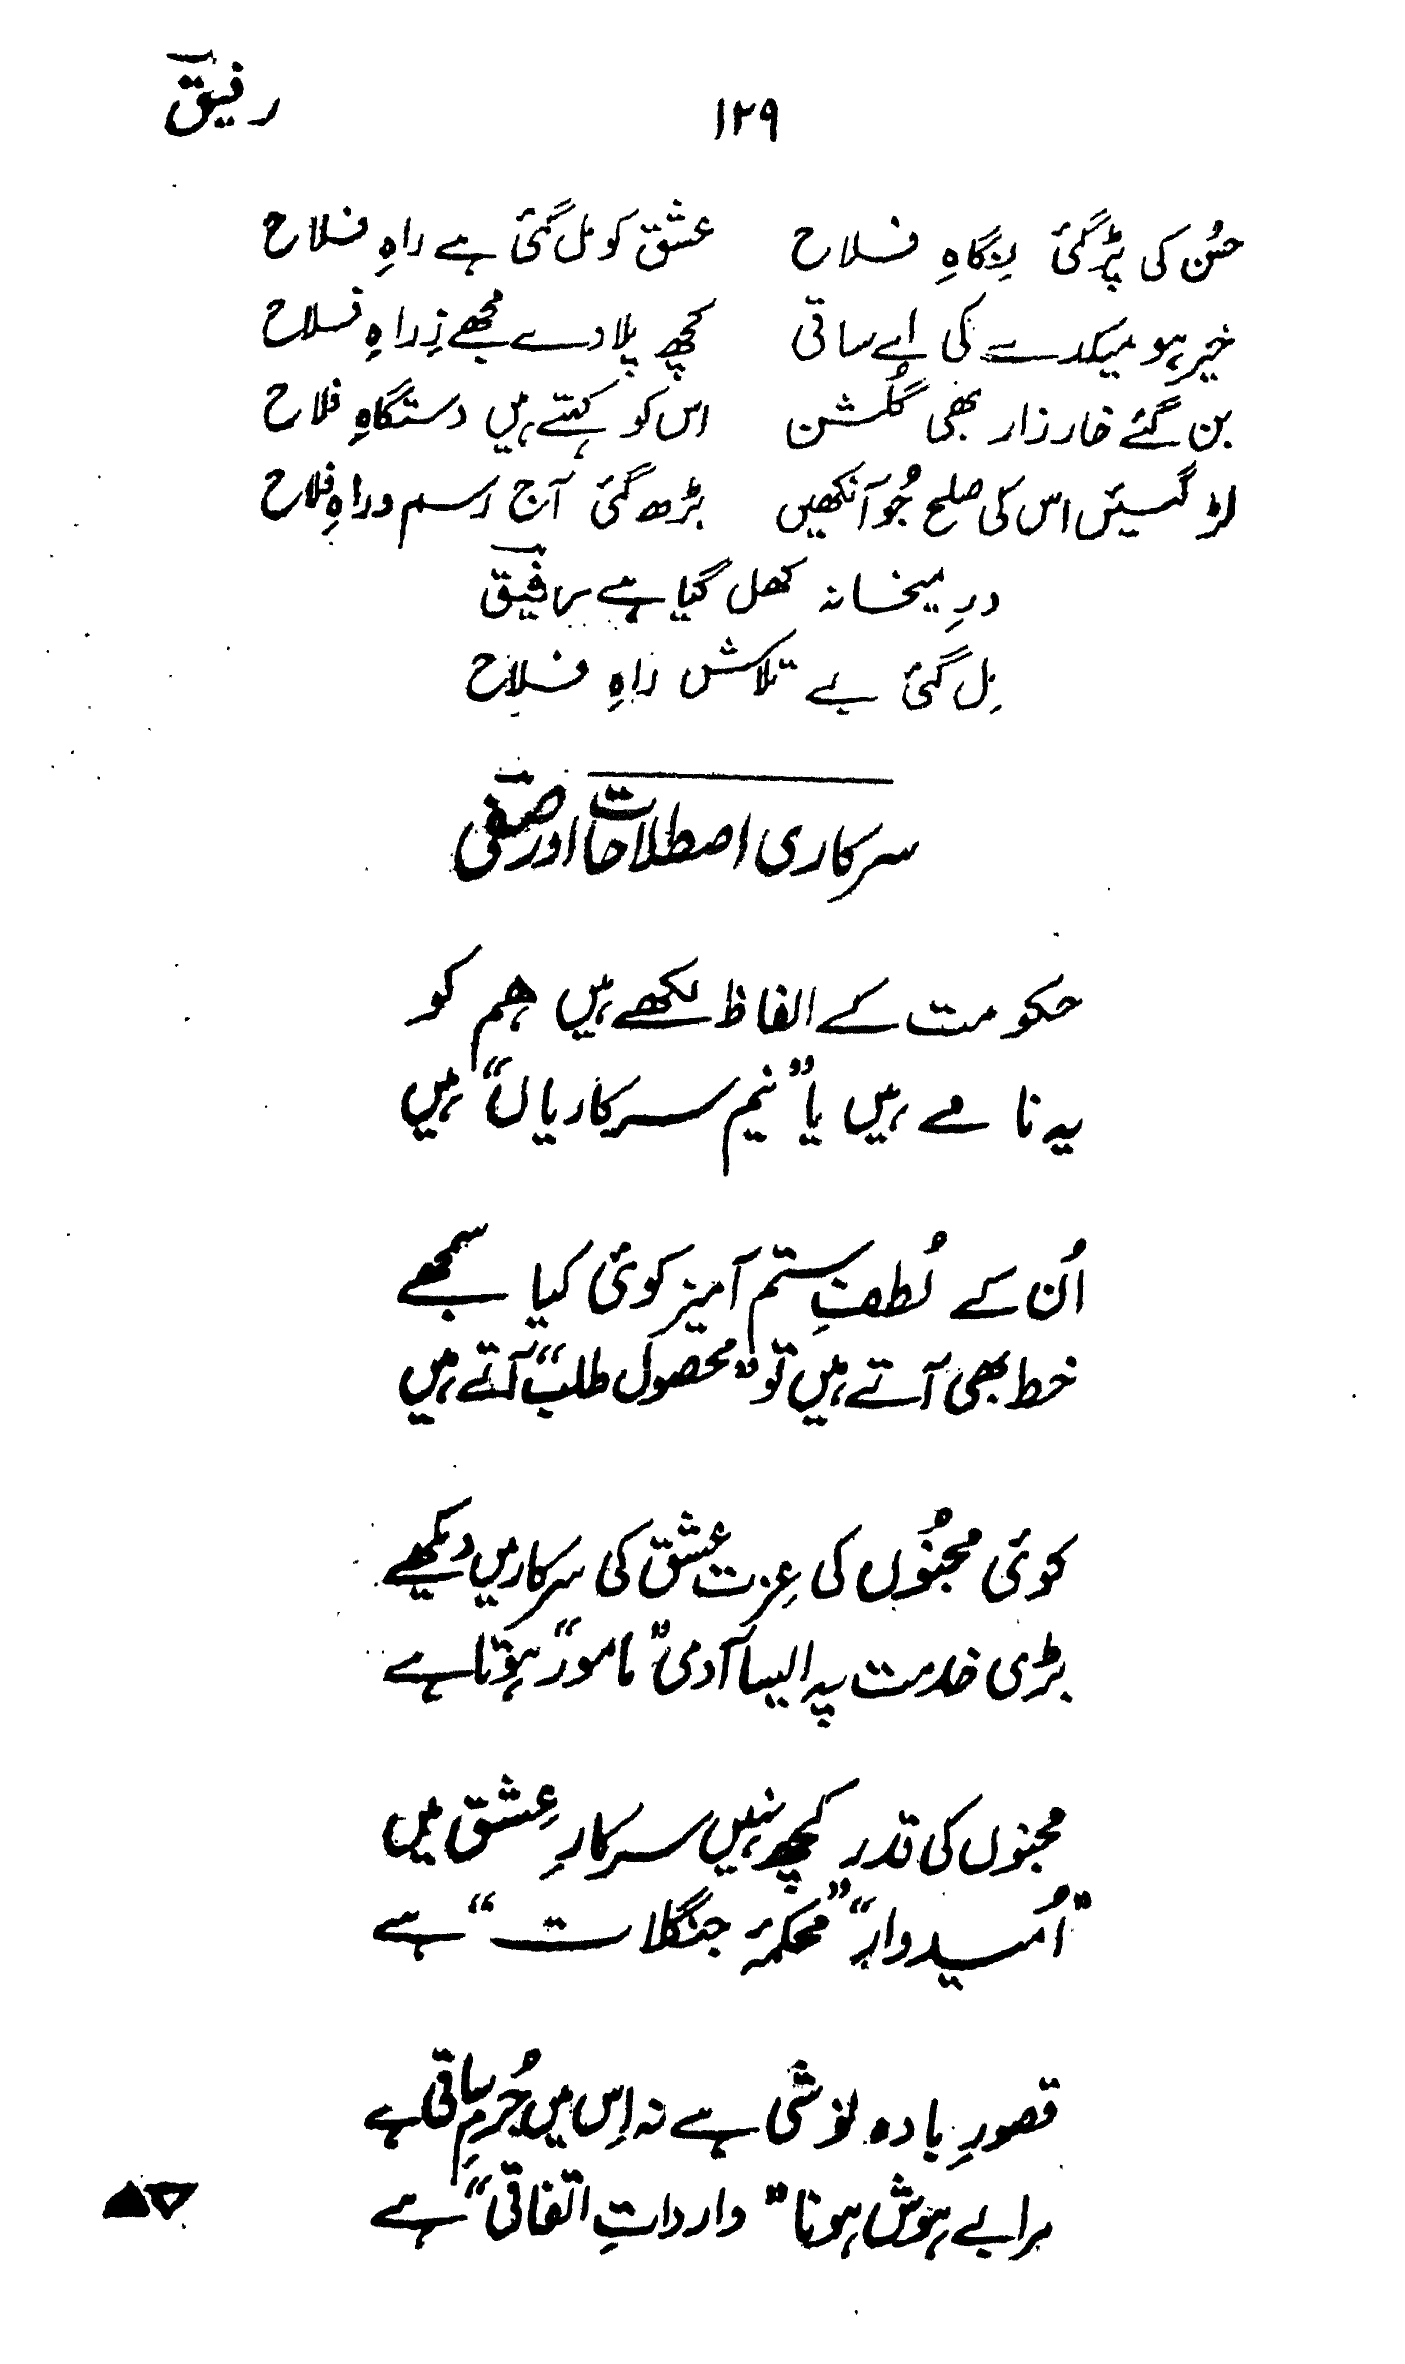 ۱۲۹ رفیق
حُسن کی پڑ گئی نِگاہِ فلاح عشق کو مل گئی ہے راہِ فلاح
خیر ہو میکدے کی اے ساقی کچھ پلا دے مجھے زِراہِ فلاح
بن گئے خار زار بھی گلُشن اس کو کہتے ہیں دستگاہِ فلاح
لڑ گئیں اس کی صلح جُو آنکھیں بڑھ گئی آج رسم و راہِ فلاح
درِ میخانہ کھل گیا ہے رفیق
مِل گئی بے تلاش راہِ فلاح
سرکاری اصطلاحات اور صفی
حکومت کے الفاظ لکھے ہیں ہم کو
یہ نامے ہیں یا ”نیم سرکاریاں“ ہیں
اُن کے لُطفِ ستم آمیز کوئی کیا سمجھے
خط بھی آتے ہیں تو ”محصول طلب“ آتے ہیں
کوئی مجنُوں کی عِزت عشق کی سرکار میں دیکھے
بڑی خدمت پہ ایسا آدمی ”مامور“ ہوتا ہے
مجنوں کی قدر کچھ نہیں سرکارِ عِشق میں
”اُمیدوار“ ”محکمۂ جنگلات“ ہے
قصورِ بادہ نوشی ہے نہ اِس میں جُرمِ ساقی ہے
مرا بے ہوش ہونا ”وارداتِ اتفاقی“ ہے